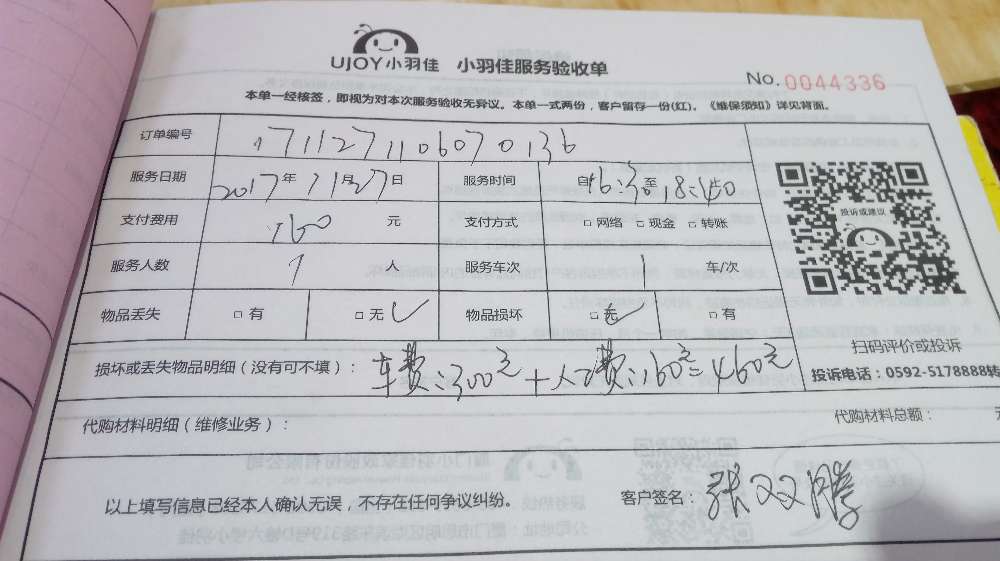 UJOY小羽佳 小羽佳服务验收单
No. 0044336
本单一经核签，即视为对本次服务验收无异议。本单一式两份，客户留存一份(红)。《维保须知》详见背面。
订单编号 1711271106070136
服务日期 2017年 11月27日 服务时间 自16:30至18:40
支付费用 160 元 支付方式 □ 网络 □ 现金 □ 转账
服务人数 1 人 服务车次 1 车/次
物品丢失 □ 有 □ 无 ✓ 物品损坏 □ 无 ✓ □ 有
投诉或建议
扫码评价或投诉
投诉电话：0592-5178888转
损坏或丢失物品明细（没有可不填）：车费:300元+人工费:160元=460元
代购材料明细（维修业务）： 代购材料总额：
以上填写信息已经本人确认无误，不存在任何争议纠纷。 客户签名：张双腾